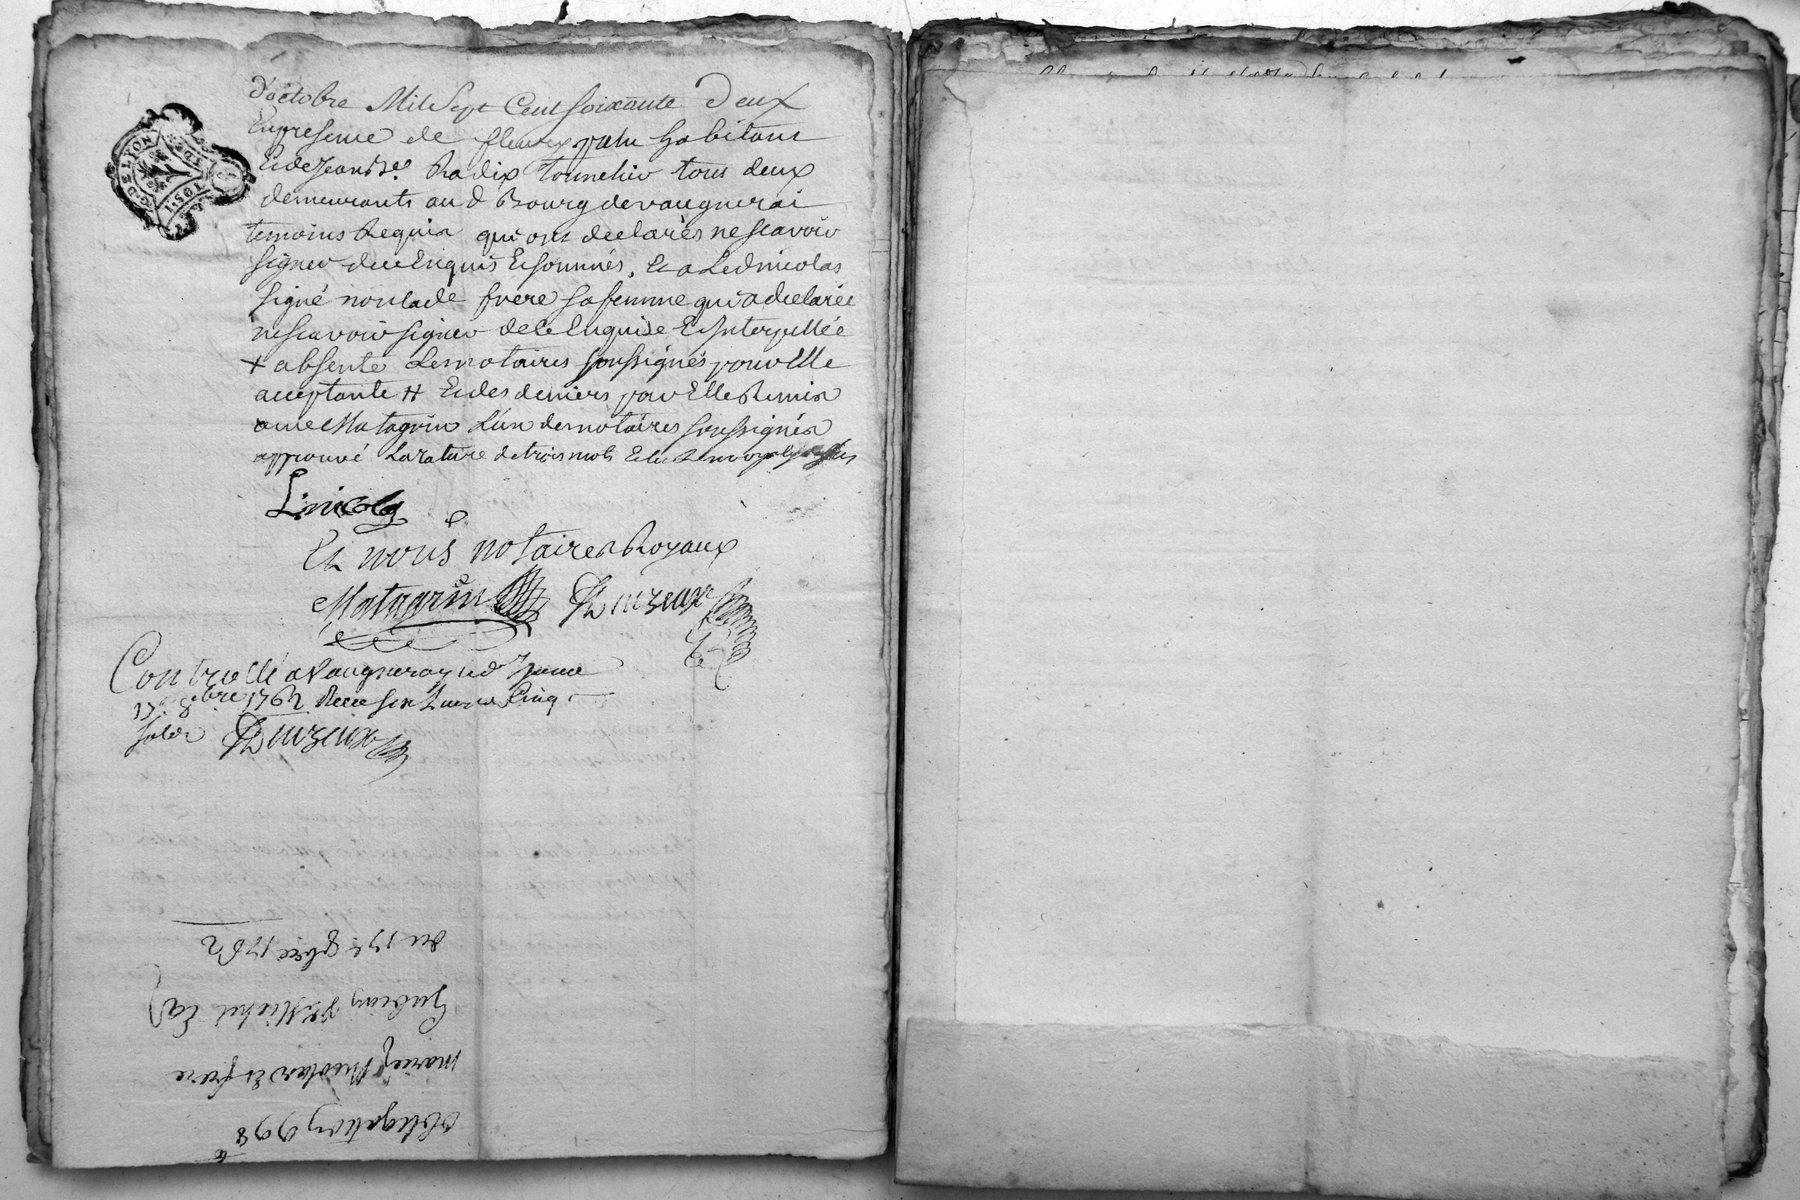 d'octobre Mil Sept Cent soixante Deux
En presence de fleury habitant
Et de Jean Bte Radix tonnelier tous deux
demeurants aud Bourg de vaugnerai
temoins Requis qui ont declarés ne scavoir
signer de ce Enquis Et sommés, Et a Led nicolas
signé non lade frere sa femme qui a declarée
ne scavoir signer de ce Enquise Et Interpellée
+ absente Les notaires soussignés pour Elle
acceptante # Et des deniers pour Elle Remis
a me Matagrin L'un des notaires soussignés
approuvé La rature de trois mots Et Le Renvoy
L nicolas
Et nous notaires Royaux
Matagrin Duzeux
Controllé a Vaugneray Led Jour
17e 8bre 1762 Receu six Livres Cinq
sols Duzeux
du 17e 8bre 1762
mariez Nicolas Et frere
obligation 998
G. DE LYON